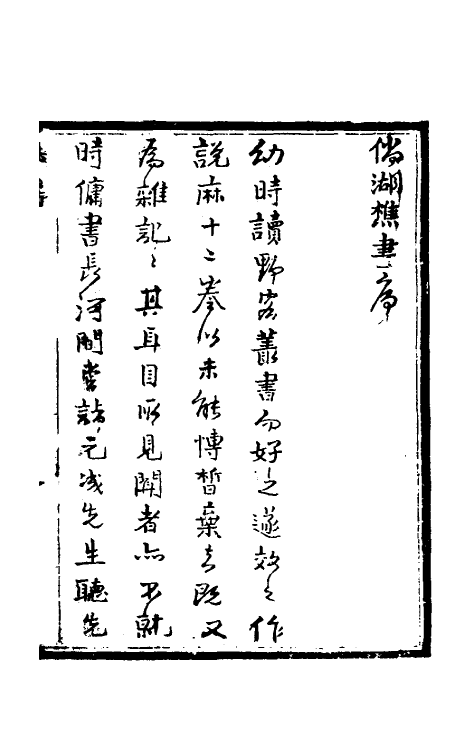 倘湖樵書序
幼時讀野客叢書而好之遂效之作
說麻十二卷以未能博暫棄去既又
為雜記〻其耳目所見聞者亦不就
時傭書長河閒嘗詣元成先生聽先